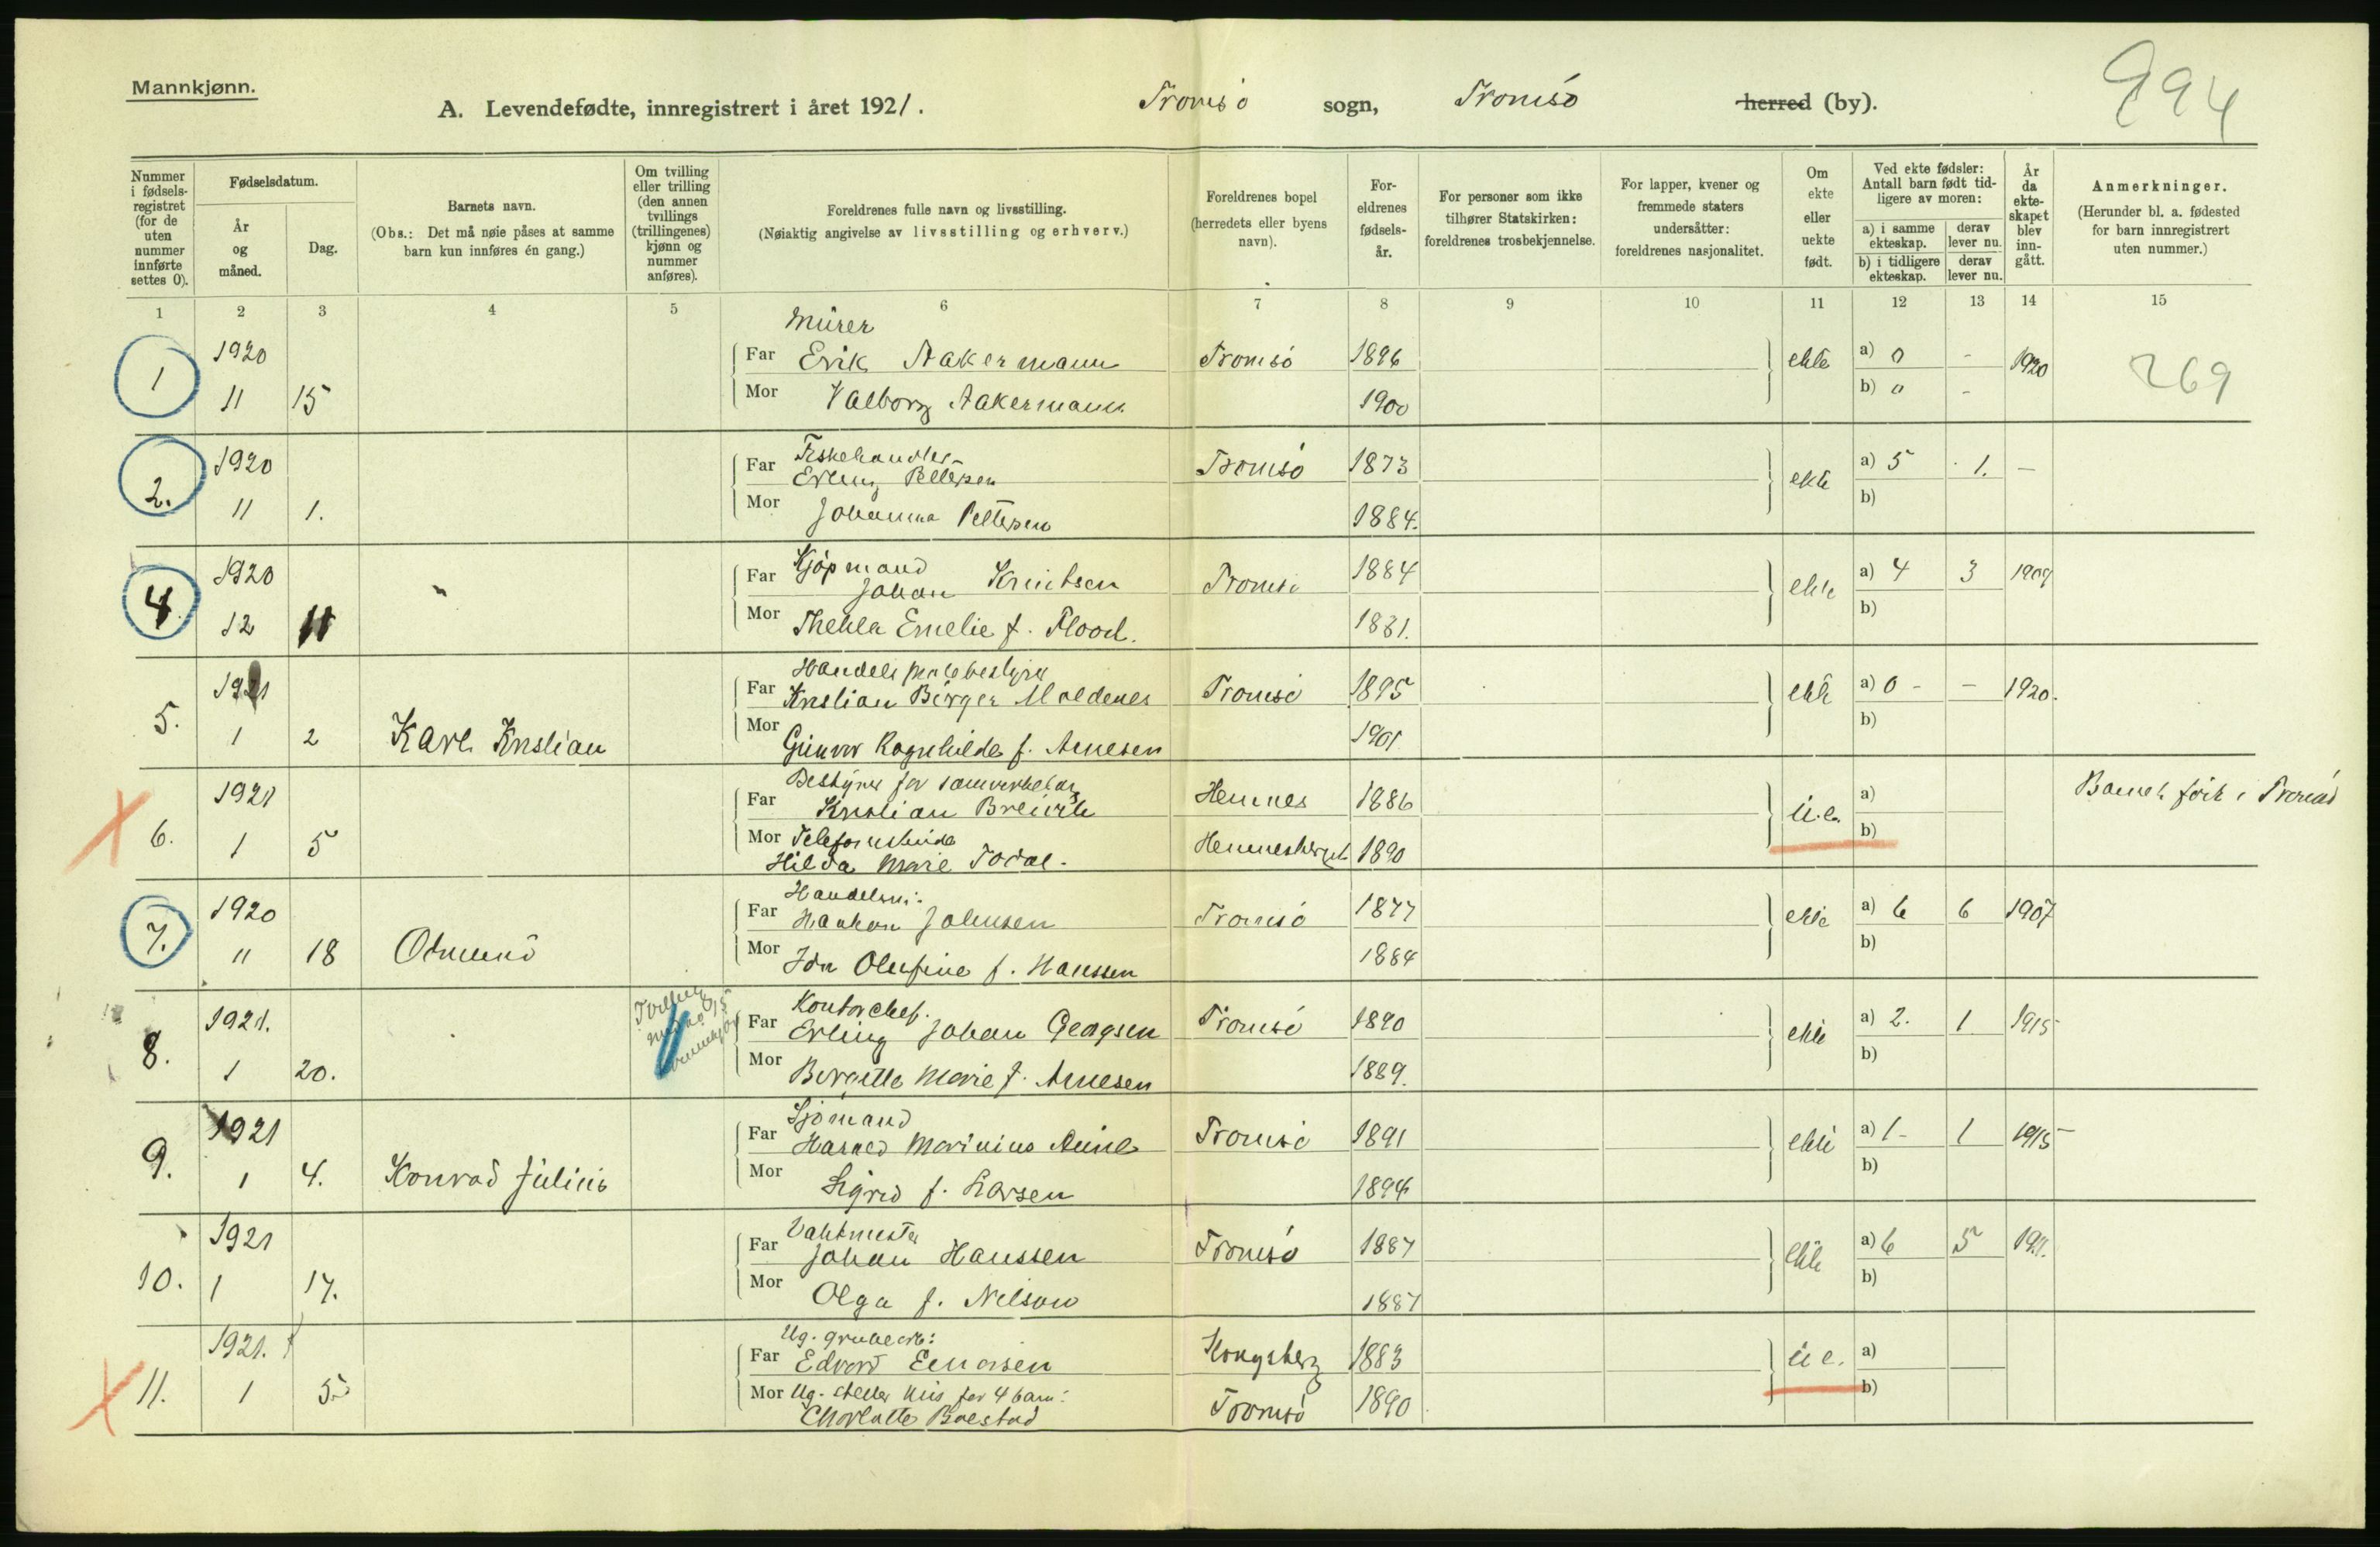 Mannkjønn.
A. Levendefødte, innregistrert i året 1921. Tromsö sogn, Tromsö herred (by).
994
Nummer i fødsels-registret (for de uten nummer innførte settes 0).
Fødselsdatum.
År og måned.
Dag.
Barnets navn.
(Obs.: Det må nøie påses at samme barn kun innføres én gang.)
Om tvilling eller trilling (den annen tvillings (trillingenes) kjønn og nummer anføres).
Foreldrenes fulle navn og livsstilling.
(Nøiaktig angivelse av livsstilling og erhverv.)
Foreldrenes bopel (herredets eller byens navn).
For-eldrenes fødsels-år.
For personer som ikke tilhører Statskirken: foreldrenes trosbekjennelse.
For lapper, kvener og fremmede staters undersåtter: foreldrenes nasjonalitet.
Om ekte eller uekte født.
Ved ekte fødsler: Antall barn født tid-ligere av moren:
a) i samme ekteskap.
derav lever nu.
b) i tidligere ekteskap.
derav lever nu.
År da ekte-skapet blev inn-gått.
Anmerkninger.
(Herunder bl. a. fødested for barn innregistrert uten nummer.)
1 2 3 4 5 6 7 8 9 10 11 12 13 14 15
Murer
1 1920 Far Erik Aakermann Tromsö 1896 ekte a) 0 - 1920 269
11 15 Mor Valborg Aakermann 1900 b) 0 -
Fiskehandler
2. 1920 Far Erling Pettersen Tromsö 1873 ekte a) 5 1. -
11 1. Mor Johanna Pettersen 1884. b)
Kjöpmand
4. 1920 Far Johan Knutsen Tromsö 1884 ekte a) 4 3 1909
12 11 Mor Thekla Emelie f. Flood. 1881. b)
5. 1921 Far Kristian Birger Moldenes Tromsö 1895 ekte a) 0 - - 1920.
1 2 Karl Kristian Mor Gunvor Ragnhilda f. Arnesen 1901 b)
Bestyrer for
6. 1921 Far Kristian Breivik Hemnes 1886 u.e. a) Barnet född i Tromsö
1 5 Mor b)
Hilda Marie Todal. 1890
7. 1920 Far Haakon Johnsen Tromsö 1877 ekte a) 6 6 1907
11 18 Odmund Mor Ida Olufine f. Hanssen 1884 b)
Kontorchef.
8. 1921. Far Erling Johan Georgsen Tromsö 1890 ekte a) 2. 1 1915
1 20. Mor Bergitte Marie f. Arnesen 1889. b)
Sjömand
9. 1921 Far Harald Marinius Tromsö 1891 ekte a) 1 - 1 1915
1 4. Konrad Julius Mor Sigrid f. Larsen 1894 b)
Vaktmester
10. 1921 Far Johan Hanssen Tromsö 1887 ekte a) 6 5
1 17. Mor Olga f. Nilson 1887 b)
Ug. grubearb:
11. 1921. Far Edvard Einarsen Kongsberg 1883 u e. a)
1 5 Mor Ug. steller hus for 4 barn: b)
Charlotte Tromsö 1890